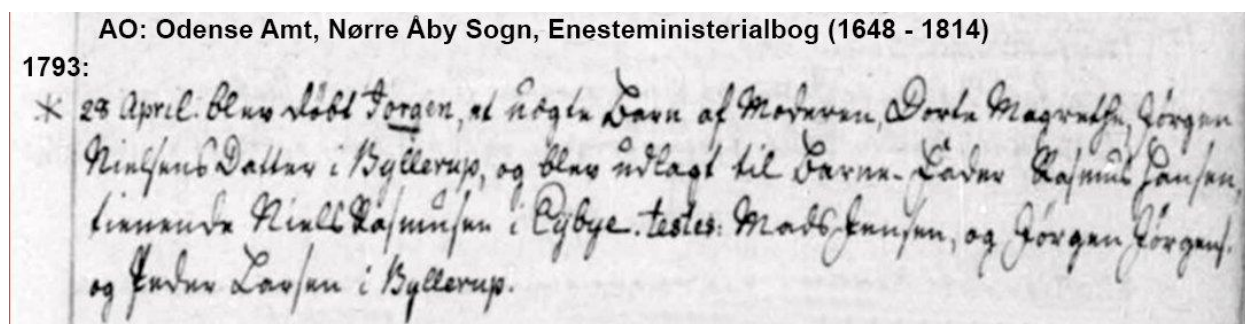 AO: Odense Amt, Nørre Åby Sogn, Enesteministerialbog (1648 - 1814)
1793:
* 28 April: blev døbt Jørgen, et uægte Barn af Moderen, Dorte Magrethe, Jørgen
Nielsens Datter i Byllerup, og blev udlagt til Barne-Fader Rasmus Hansen,
tienende Niels Rasmusen i Eybye. testes: Mads Jensen, og Jørgen Jørgens.
og Peder Larsen i Byllerup.